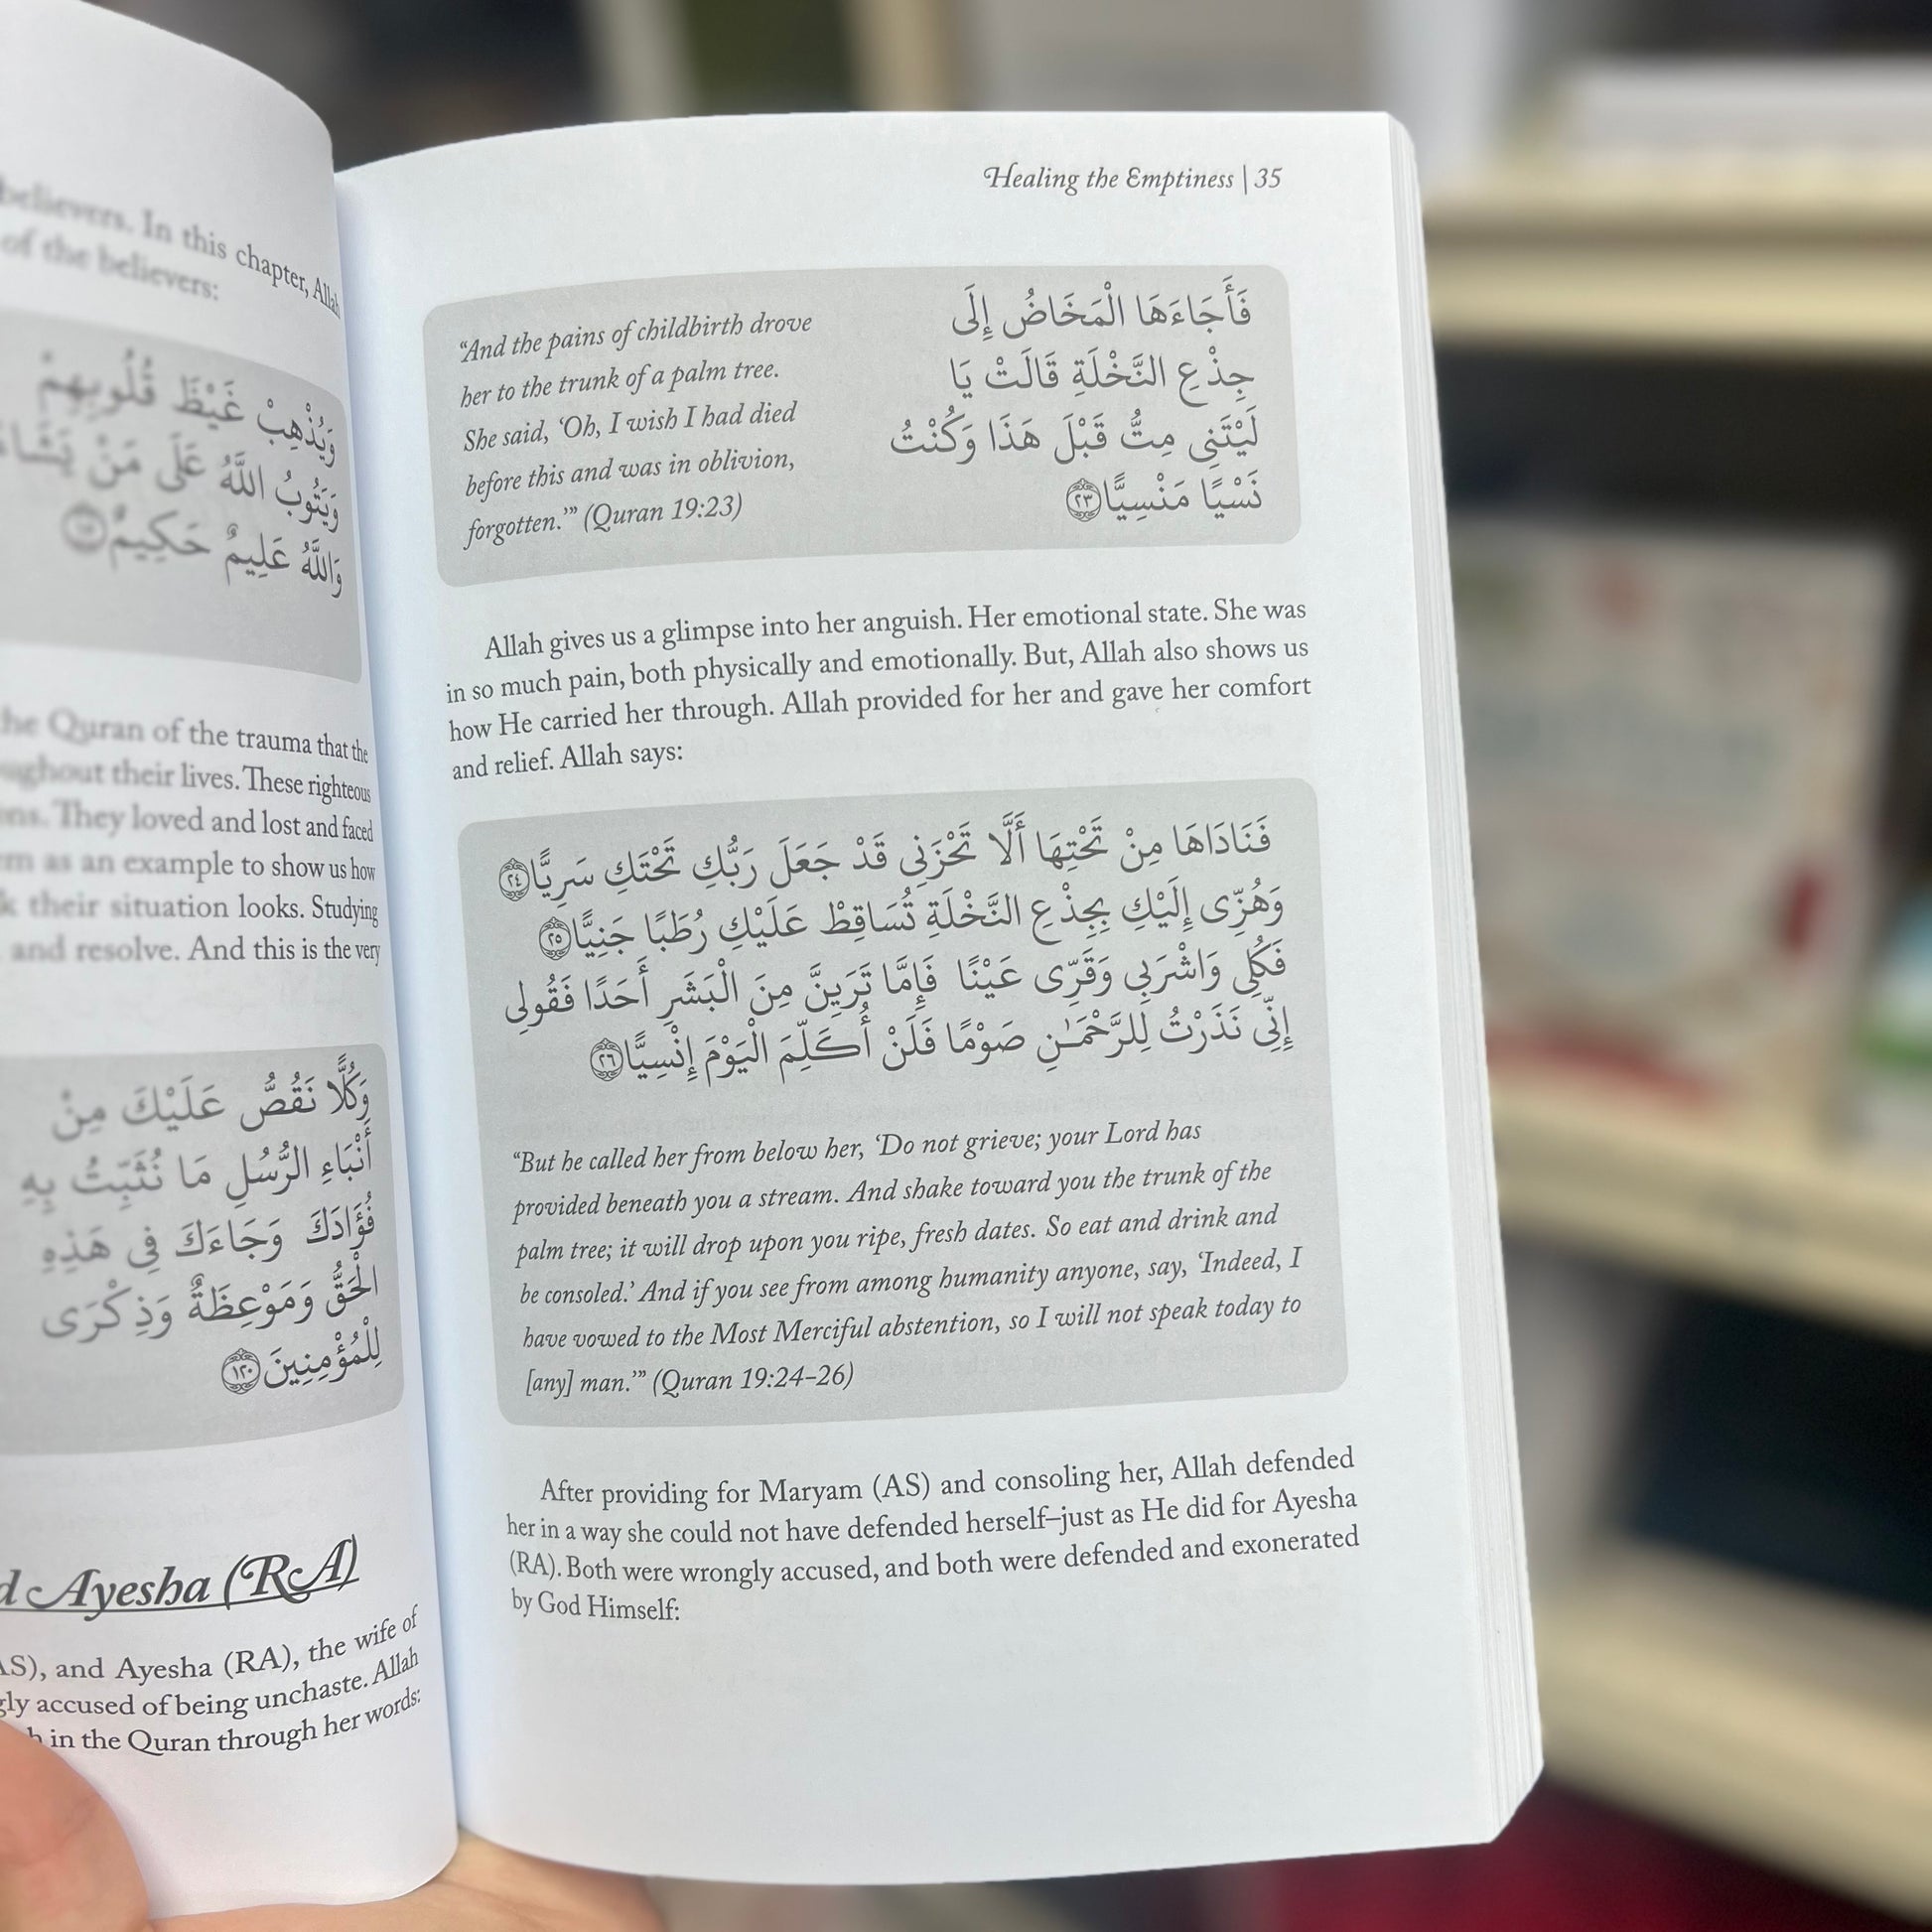 believers. In this chapter, Allah
of the believers:
وَيُذْهِبْ غَيْظَ قُلُوبِهِمْ
وَيَتُوبُ اللَّهُ عَلَى مَنْ يَشَاءُ
وَاللَّهُ عَلِيمٌ حَكِيمٌ
the Quran of the trauma that the
oughout their lives. These righteous
ons. They loved and lost and faced
em as an example to show us how
k their situation looks. Studying
and resolve. And this is the very
وَكُلًّا نَقُصُّ عَلَيْكَ مِنْ
أَنْبَاءِ الرُّسُلِ مَا نُثَبِّتُ بِهِ
فُؤَادَكَ وَجَاءَكَ فِى هَذِهِ
الْحَقُّ وَمَوْعِظَةٌ وَذِكْرَى
لِلْمُؤْمِنِينَ ١٢٠
d Ayesha (RA)
AS), and Ayesha (RA), the wife of
gly accused of being unchaste. Allah
h in the Quran through her words:
Healing the Emptiness | 35
“And the pains of childbirth drove
her to the trunk of a palm tree.
She said, ‘Oh, I wish I had died
before this and was in oblivion,
forgotten.’” (Quran 19:23)
فَأَجَاءَهَا الْمَخَاضُ إِلَى
جِذْعِ النَّخْلَةِ قَالَتْ يَا
لَيْتَنِى مِتُّ قَبْلَ هَذَا وَكُنْتُ
نَسْيًا مَنْسِيًّا ٢٣
Allah gives us a glimpse into her anguish. Her emotional state. She was
in so much pain, both physically and emotionally. But, Allah also shows us
how He carried her through. Allah provided for her and gave her comfort
and relief. Allah says:
فَنَادَاهَا مِنْ تَحْتِهَا أَلَّا تَحْزَنِى قَدْ جَعَلَ رَبُّكِ تَحْتَكِ سَرِيًّا ٢٤
وَهُزِّى إِلَيْكِ بِجِذْعِ النَّخْلَةِ تُسَاقِطْ عَلَيْكِ رُطَبًا جَنِيًّا ٢٥
فَكُلِى وَاشْرَبِى وَقَرِّى عَيْنًا فَإِمَّا تَرَيِنَّ مِنَ الْبَشَرِ أَحَدًا فَقُولِى
إِنِّى نَذَرْتُ لِلرَّحْمَـٰنِ صَوْمًا فَلَنْ أُكَلِّمَ الْيَوْمَ إِنْسِيًّا ٢٦
“But he called her from below her, ‘Do not grieve; your Lord has
provided beneath you a stream. And shake toward you the trunk of the
palm tree; it will drop upon you ripe, fresh dates. So eat and drink and
be consoled.’ And if you see from among humanity anyone, say, ‘Indeed, I
have vowed to the Most Merciful abstention, so I will not speak today to
[any] man.’” (Quran 19:24–26)
After providing for Maryam (AS) and consoling her, Allah defended
her in a way she could not have defended herself–just as He did for Ayesha
(RA). Both were wrongly accused, and both were defended and exonerated
by God Himself: